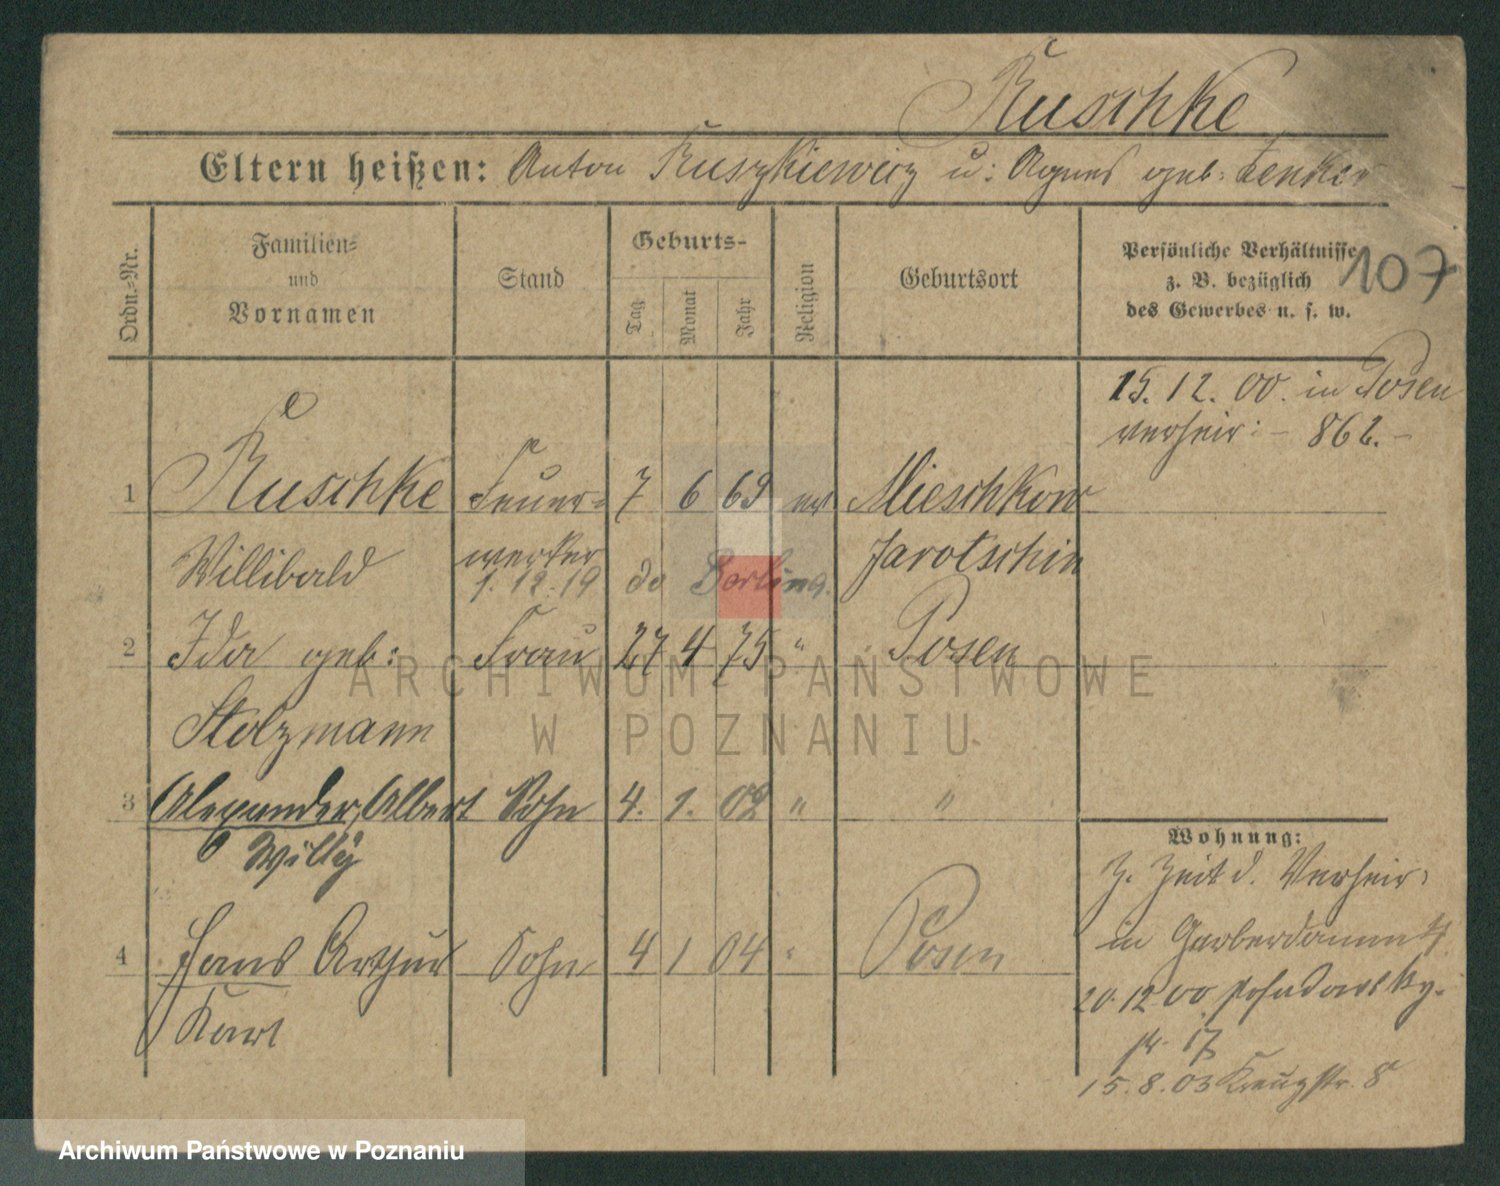 Ruschke
Eltern heißen: Anton Ruszkiewicz u: Agnes geb: Lenker
Ordn.-Nr.
Familien-
und
Vornamen
Stand
Geburts-
Tag
Monat
Jahr
Religion
Geburtsort
Persönliche Verhältnisse
z. B. bezüglich
des Gewerbes u. s. w.
107
15. 12. 00. in Posen
verheir: – 862. –
e
1 Ruschke Feuer- 7 6 69 ev Mieschkow
Willibald werker Jarotschin
1.12.19 do Berlin
2 Ida geb: Frau 27 4 75 " Posen
Stolzmann
3 Alexander, Albert Sohn 4. 1. 02 " "
Willy
4 Hans Artur Sohn 4 1 04 " Posen
Karl
Wohnung:
Z. Zeit d. Verheir:
in Gerberdamm
20.12.00 Posadowsky-
str. 17
15.8.03 Kreuzstr. 8
ARCHIWUM PAŃSTWOWE
W POZNANIU
Archiwum Państwowe w Poznaniu